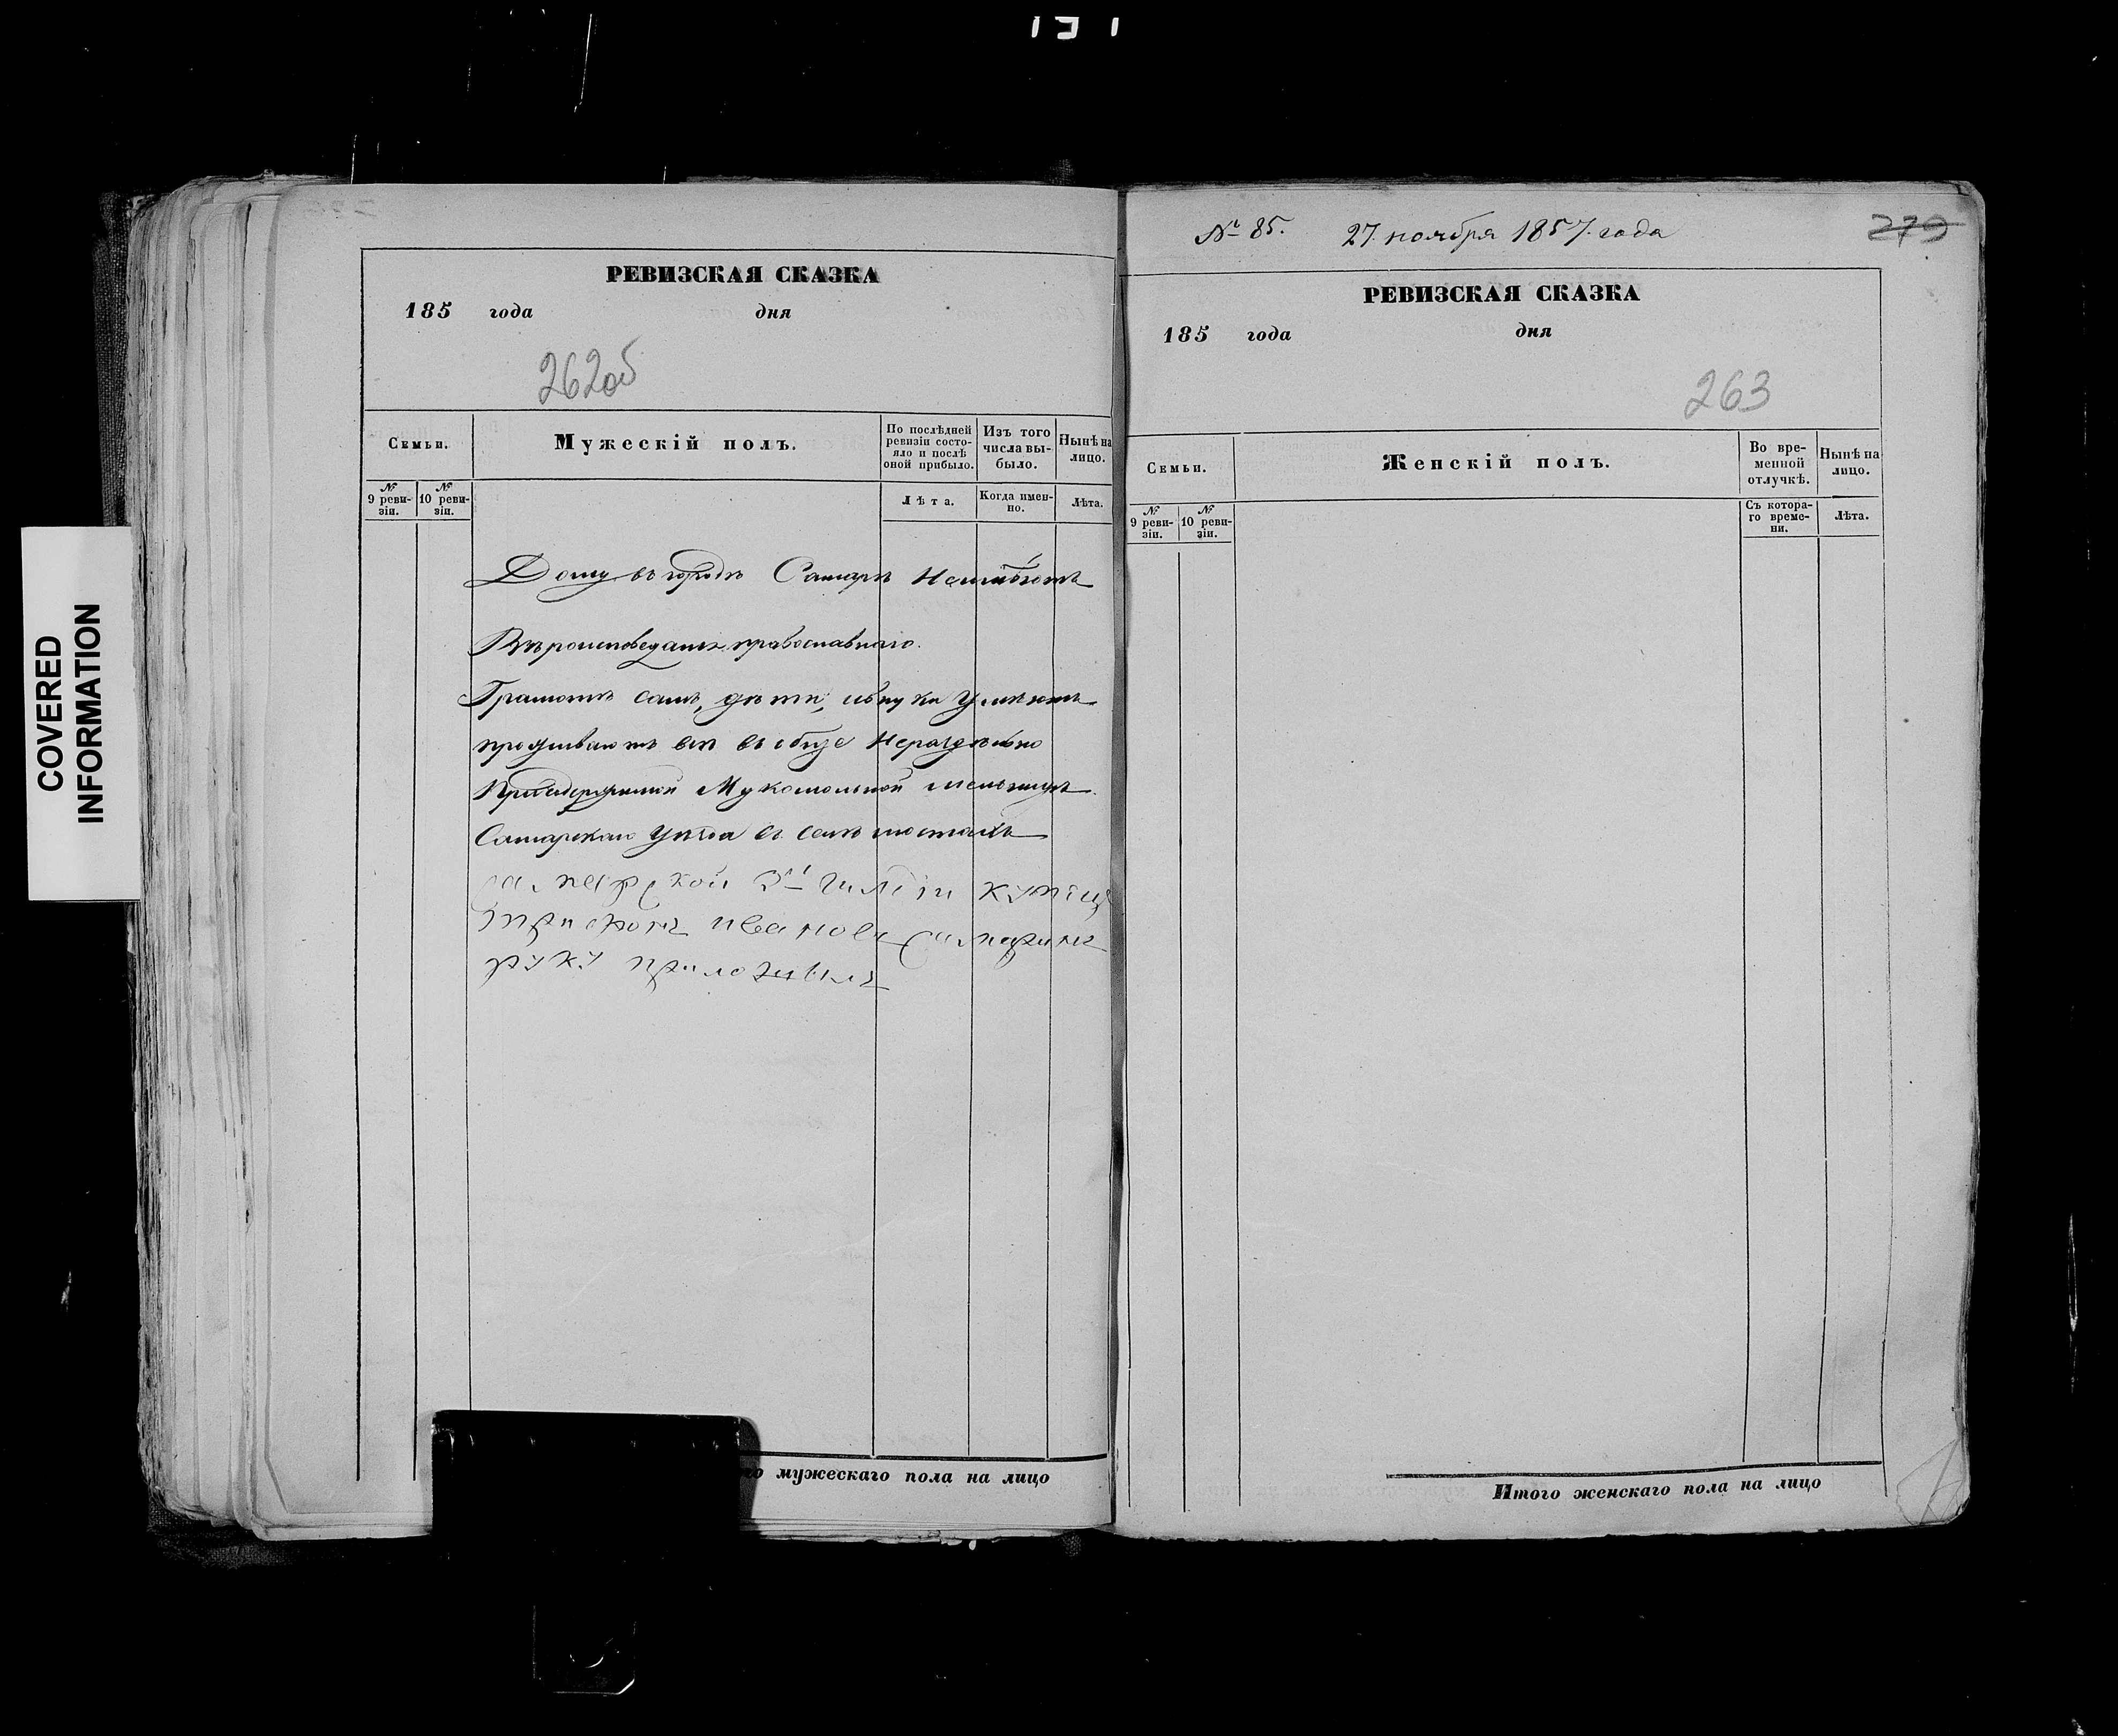 COVERED
INFORMATION
РЕВИЗСКАЯ СКАЗКА
185 года дня
262об
Семьи.
Мужескій полъ.
По послѣдней
ревизіи состо-
яло и послѣ
оной прибыло.
Изъ того
числа вы-
было.
Нынѣ на
лицо.
№
9 реви-
зіи.
№
10 реви-
зіи.
Лѣта.
Когда имен-
но.
Лѣта.
Дому въ городѣ Самарѣ Неимѣютъ
Вѣроисповеданія православнаго.
Грамотѣ самъ, дѣти, и внуки Умѣютъ
проживаютъ всѣ въобще Нераздѣльно
Мукомольной мельницѣ
Самарскаго Уѣзда въ селѣ
самарской 3й гилдіи купецъ
Трифонъ Ивановъ
руку приложилъ
мужескаго пола на лицо
№ 85. 27. ноября 1857. года
279
РЕВИЗСКАЯ СКАЗКА
185 года дня
263
Семьи.
Женскій полъ.
Во вре-
менной
отлучкѣ.
Нынѣ на
лицо.
№
9 реви-
зіи.
№
10 реви-
зіи.
Съ котора-
го време-
ни.
Лѣта.
Итого женскаго пола на лицо